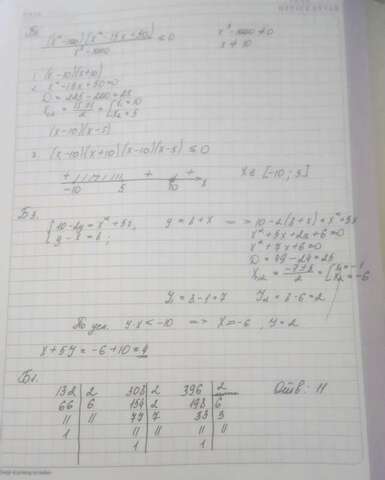 (x²-100)(x²-15x+50) / x³-1000 ≤ 0
x³-1000 ≠ 0
x ≠ 10
1. (x-10)(x+10)
2. x²-15x+50=0
D = 225-200=25
(x-10)(x-5)
3. (x-10)(x+10)(x-10)(x-5) ≤ 0
+ + +
-10 5 10 x
x ∈ [-10; 5]
Б3.
{10-2y = x²+5x,
y-x = 8;
y = 8+x => 10-2(8+x) = x²+5x
x²+5x+2x+6=0
x²+7x+6=0
D = 49-24=25
x₁,₂ = -7±5 / 2 = [x₁=-1
x₂=-6
y₁ = 8-1=7 y₂ = 8-6=2
По усл. y·x < -10 => x=-6, y=2
x+5y = -6+10=4
Б1.
132 2 308 2 396 2
66 6 154 2 198 6
11 11 77 7 33 3
1 11 11 11 11
1 1
Отв: 11